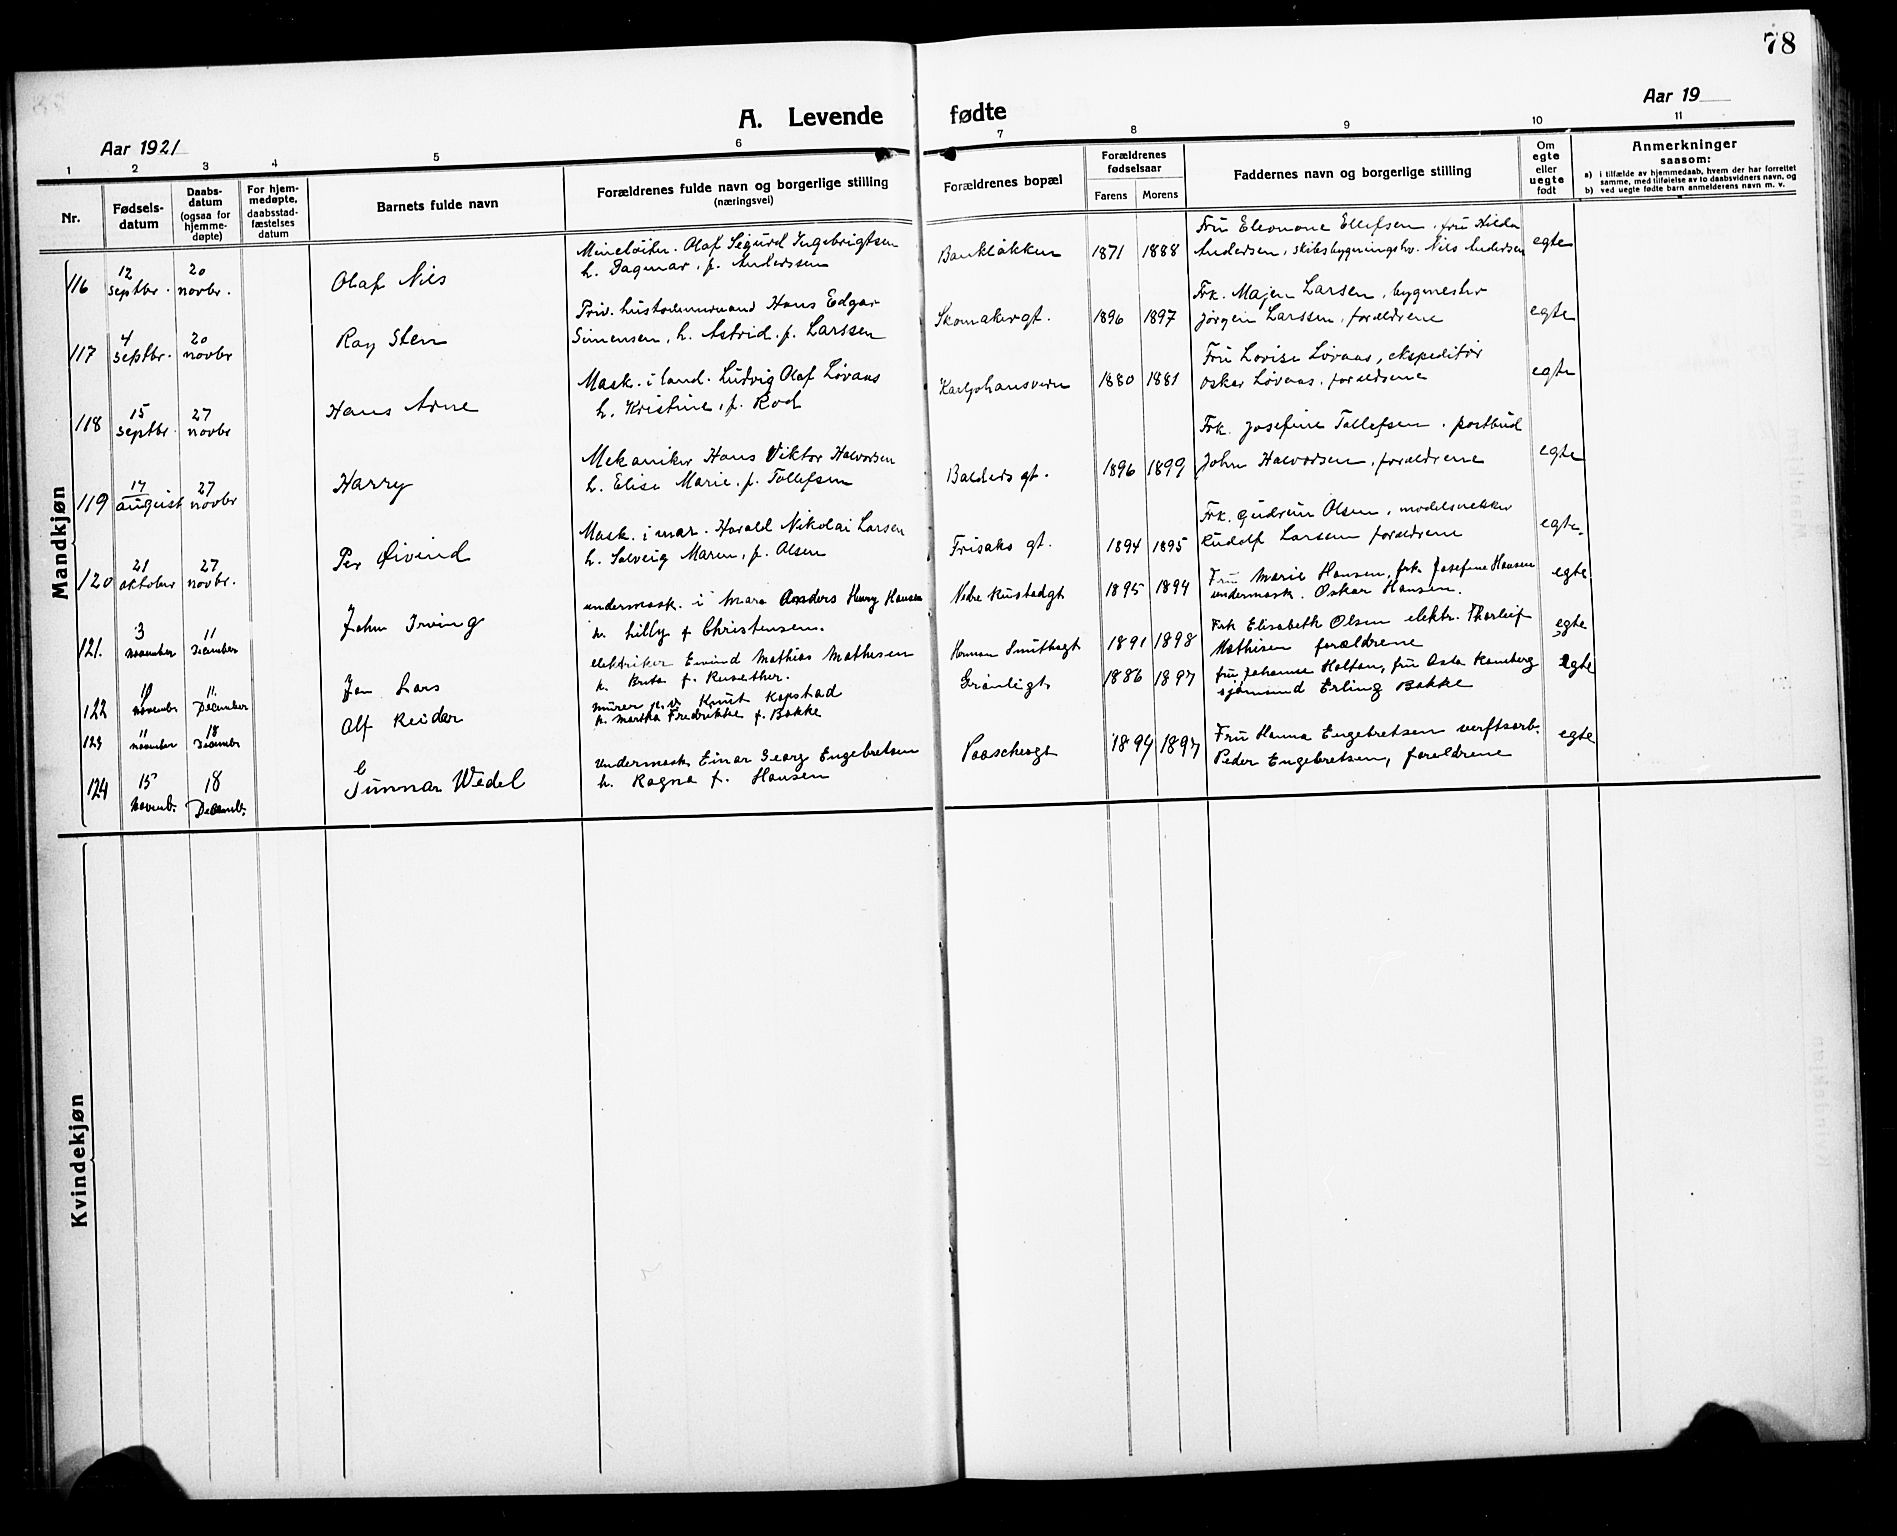 78
A. Levende fødte
Aar 1921
Aar 19
1 2 3 4 5 6 7 8 9 10 11
Nr.
Fødsels-
datum
Daabs-
datum
(ogsaa for
hjemme-
døpte)
For hjem-
medøpte,
daabsstad-
fæstelses
datum
Barnets fulde navn
Forældrenes fulde navn og borgerlige stilling
(næringsvei)
Forældrenes bopæl
Forældrenes
fødselsaar
Farens Morens
Faddernes navn og borgerlige stilling
Om
egte
eller
uegte
født
Anmerkninger
saasom:
a) i tilfælde av hjemmedaab, hvem der har forrettet
samme, med tilføielse av to daabsvidners navn, og
b) ved uegte fødte barn anmelderens navn m. v.
Mandkjøn
116 12 septbr. 20 novbr. Olaf Nils
Olaf Sigurd Ingebrigtsen
h. Dagmar, f. Anderssen
Bankløkken 1871 1888
Fru Eleonore Ellefsen, fru Hilda
Andersen, skibsbygningsbo. Nils Andersen
egte
117 4 septbr. 20 novbr Ray Sten
Priv. Hans Edgar
Simensen, h. Astrid, f. Larssen
Skomakergt. 1896 1897
Frk. Majen Larsen, bygmester
Jørgen Larssen, forældrene
egte
118 15 septbr. 27 novbr Hans Arne
Mask. i land. Ludvig Olaf Løvaas
h. Kristine, f. Rod
Karljohansvern 1880 1881
Fru Lovise Løvaas, ekspeditør
Oskar Løvaas, forældrene
egte
119 17 august 27 novbr Harry
Mekaniker Hans Viktor Halvorsen
h. Elise Marie, f. Tollefsen
Balders gt. 1896 1899
Frk. Josefine Tollefsen, postbud
John Halvorsen, forældrene
egte
120 21 oktober 27 novbr. Per Øivind
Mask. i mar. Harald Nikolai Larsen
h. Solveig Maren, f. Olsen
Frisaks gt. 1894 1895
Frk. Gudrun Olsen, modelsnekker
Rudolf Larsen forældrene
egte
121. 3 november 11 December John Irving
undermask. i mare Anders Henry Hansen
h. Lilly f Christensen.
Nedre Kustadgt 1895 1894
Fru Marie Hansen, frk. Josefine Hansen
undermask. Oskar Hansen.
egte
122 november 11 December Jan Lars
elektriker Eivind Mathias Mathisen
h. Bruta f. Rusether.
Herman Smithsgt 1891 1898
Frk Elisabeth Olsen elektr. Thorleif
Mathisen forældrene
egte
123 11 november 18 Decembr Alf Reidar
murer Knut Kopstad
h. Martha Fredrikke f. Bakke
Grønligt 1886 1897
fru Johanne Holtan, fru Asta Kamberg
sjømand Erling Bakke
egte
124 15 Novemb. 18 Decemb. Gunnar Wedel
Undermask Einar Georg Engebretsen
h. Ragna f. Hansen
Paaschesgt 1894 1897
Fru Hanna Engebretsen verftsarb.
Peder Engebretsen, forældrene
egte
Kvindekjøn